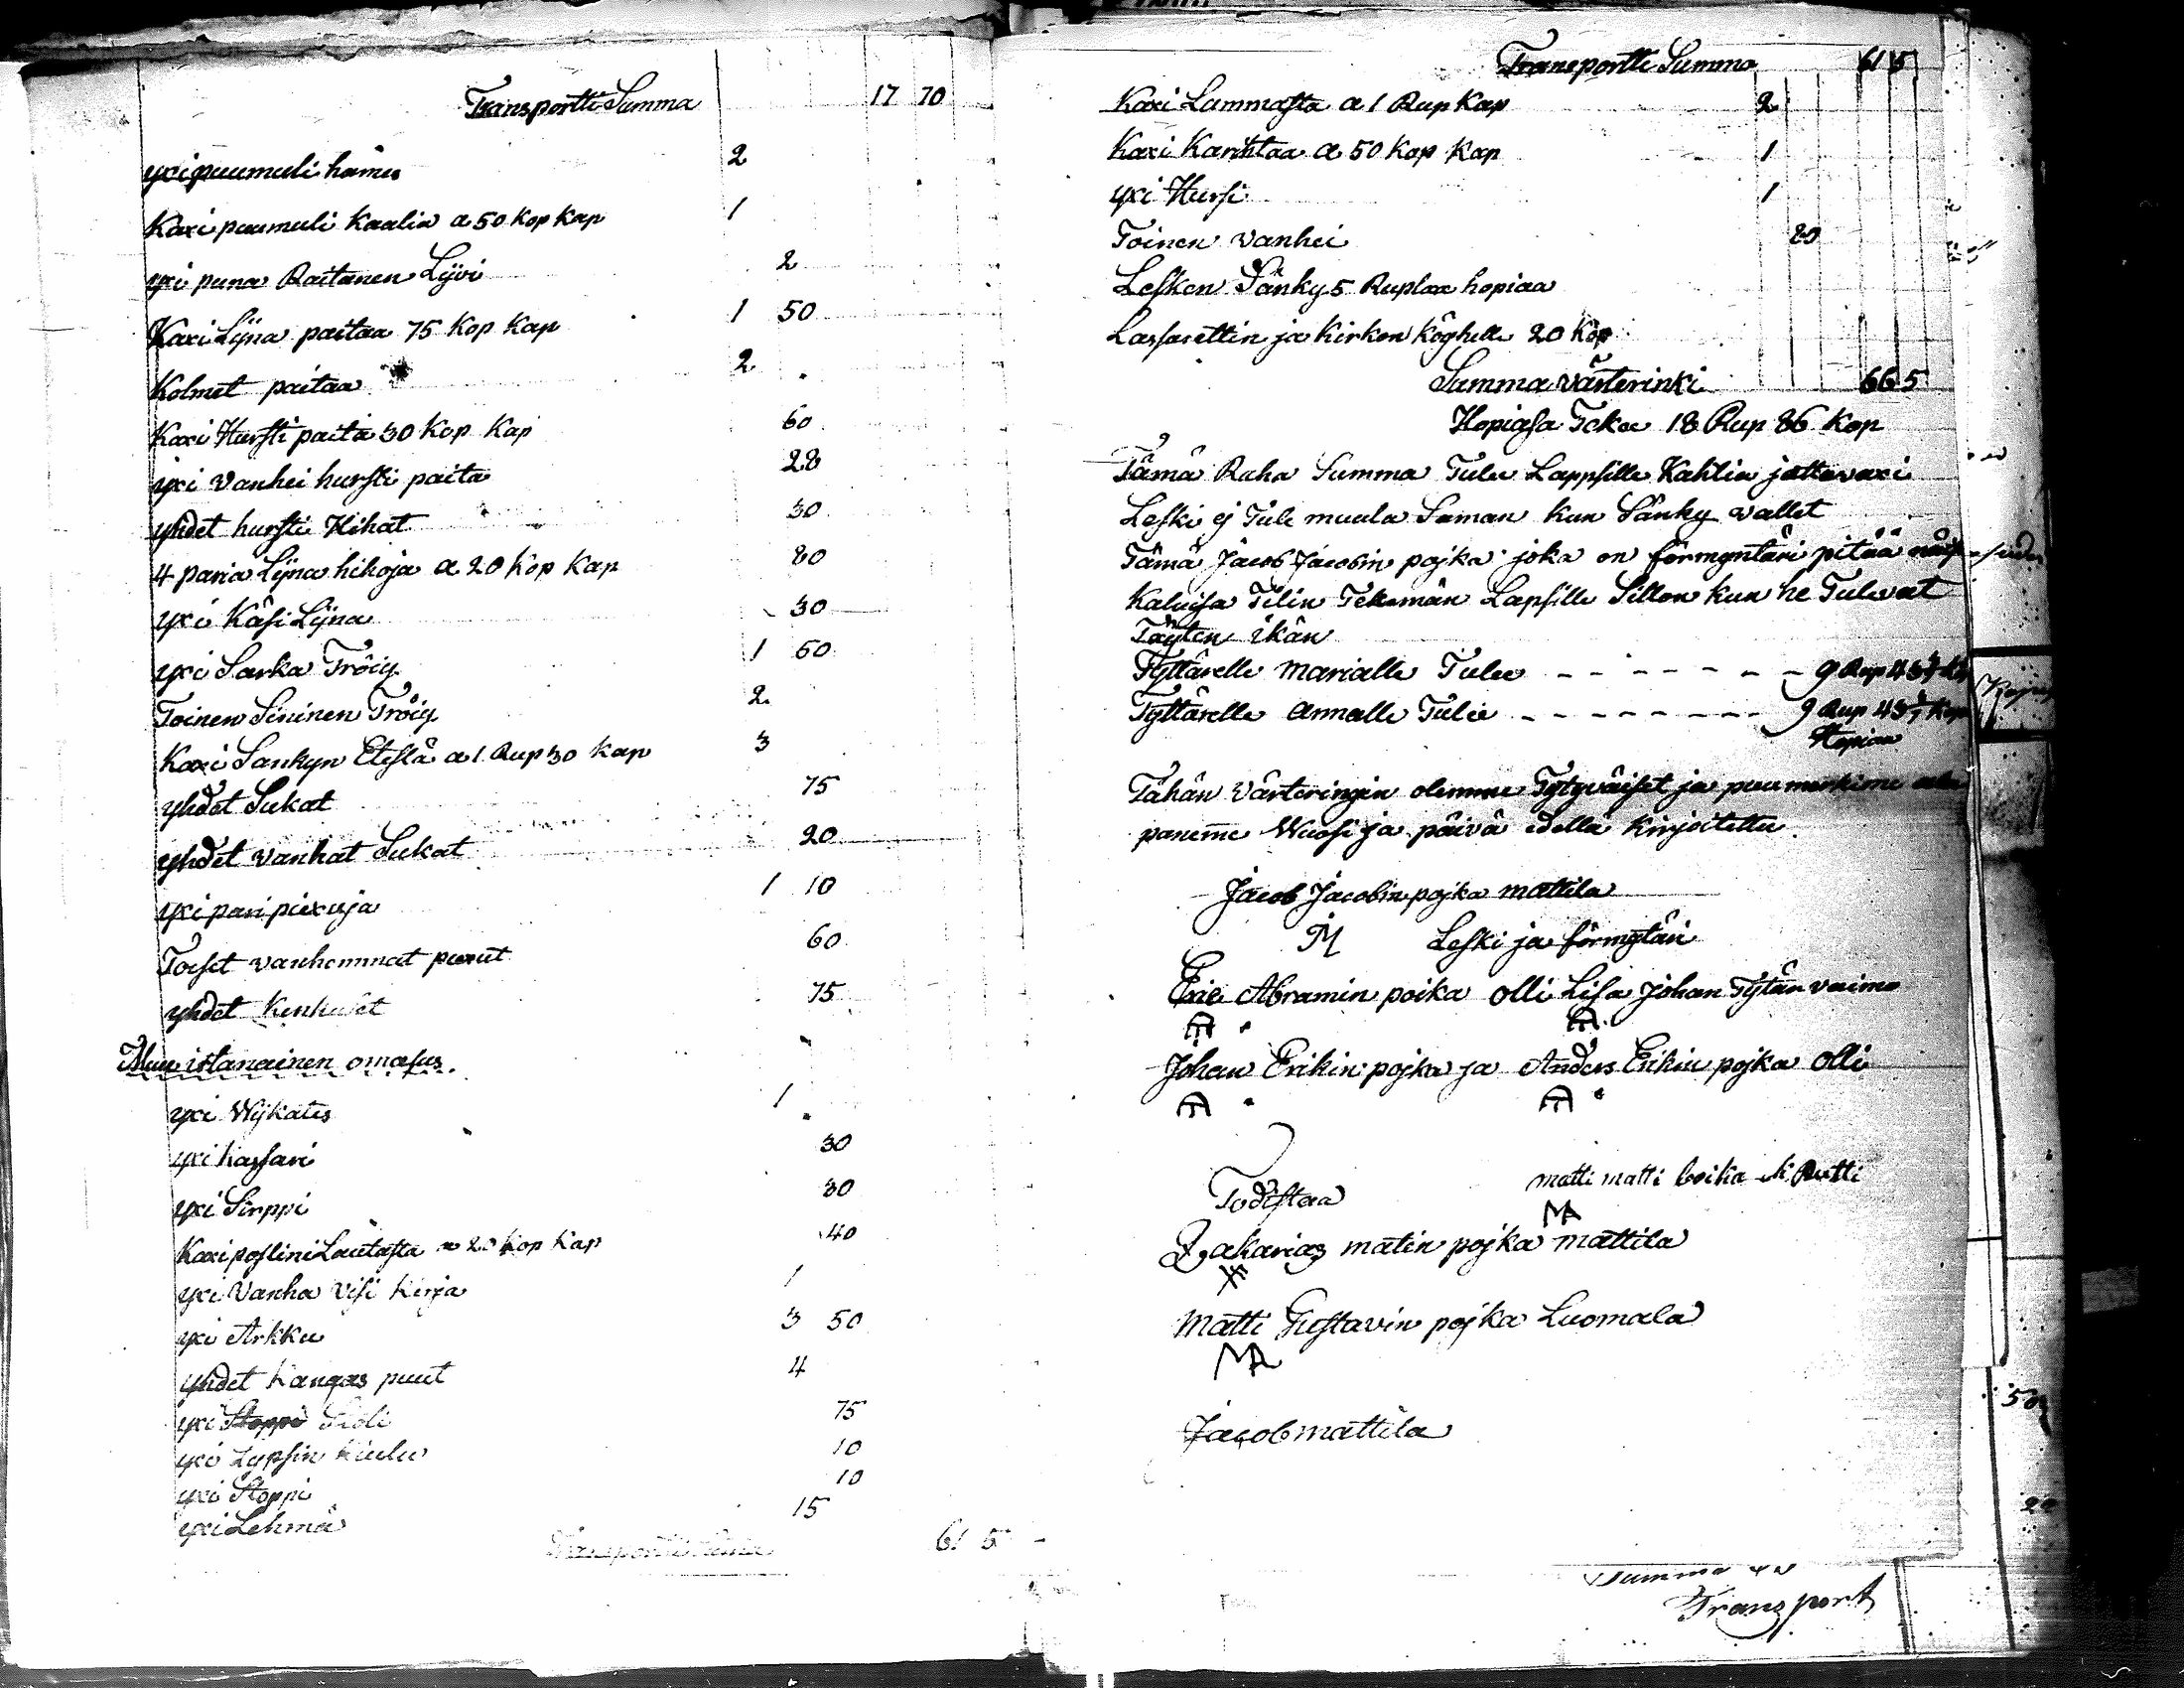 Transportti Summa 17 70
yxi puumuli hämes 2
Kaxi puumuli Kaalia a 50 Kop Kap 1
yxi puna Raitanen Lijvi 2
Kaxi Lijna paitaa 75 Kop Kap 1 50
Kolmet paitaa 2
Kaxi Hursti paita 30 Kop Kap 60
yxi vanhei hursti paita 28
yhdet hursti Hihat 30
4 paria Lijna hihoja a 20 Kop Kap 80
yxi Käsi Lijna 30
yxi Sarka Tröiy 1 50
Toinen Sininen Tröiy 2
Kaxi Sankyn Etestä a 1 Rup 30 Kap 3
yhdet Sukat 75
yhdet vanhat Sukat 20
yxi pari piexuja 1 10
Toiset vanhemmat piexut 60
yhdet 75
istanainen omasus.
yxi Wijkates 1
yxi kassari 30
yxi Sirppi 30
Kaxi poslini Lautasta a 20 Kop Kap 40
yxi Vanha Visi Kirja 1
yxi Arkku 3 50
yhdet Kangas puut 4
yxi Stoppi Tooli 75
yxi Lypsin Kiulu 10
yxi Stoppi 10
yxi Lehmä 15
Transportti Suma 61 5
Transportti Summa 61 5
Kaxi Lammasta a 1 Rup Kap 2
Kaxi Karihtaa a 50 Kop Kap 1
yxi Hursi 1
Toinen vanhei 20
Lesken Sänky 5 Ruplaa hopiaa
Lassarettin ja Kirkon Köyhille 20 Kop
Summa värterinki 66 5
Hopiasa Teke 18 Rup 86 Kop
Tämä Raha Summa Tulee Lappsille Kahtia jättavaxi
Leski ej Tule muula Saman kun Sänky vallet
Tämä Jacob Jacobin pojka joka on förmyntäri pitää
Kaluisa Tilin Tekemän Lapsille Sillon kun he Tulevat
Täyten ikän
Tyttärelle Marialle Tulee - - - - - - - 9 Rup 43
Tyttärelle Annalle Tulee - - - - - - - - 9 Rup 43 Kop
Hopiaa
Tähän värteringin olemme Tytyväiset ja puumerkime
panemme Wuosi ja päivä edellä Kirjoitettu.
Jacob Jacobin pojka Mattila
M Leski ja förmytäri
Eric Abramin poika Olli Lisa Johan Tytär vaimo
Johan Erikin pojka ja Anders Erikin pojka Olli
Todistaa matti matti boika
Zakarias Matin pojka Mattila
Matti Gustavin pojka Luomala
Jacob Mattila
Summa
Transport